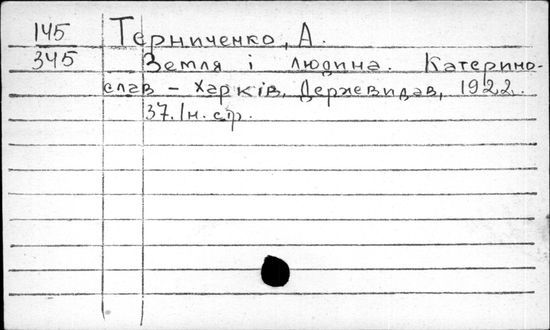 145 Терниченко, А.
345 Земля і людина. Катерино-
слав - Харків, Держвидав, 1922.
37. Ін. стр.